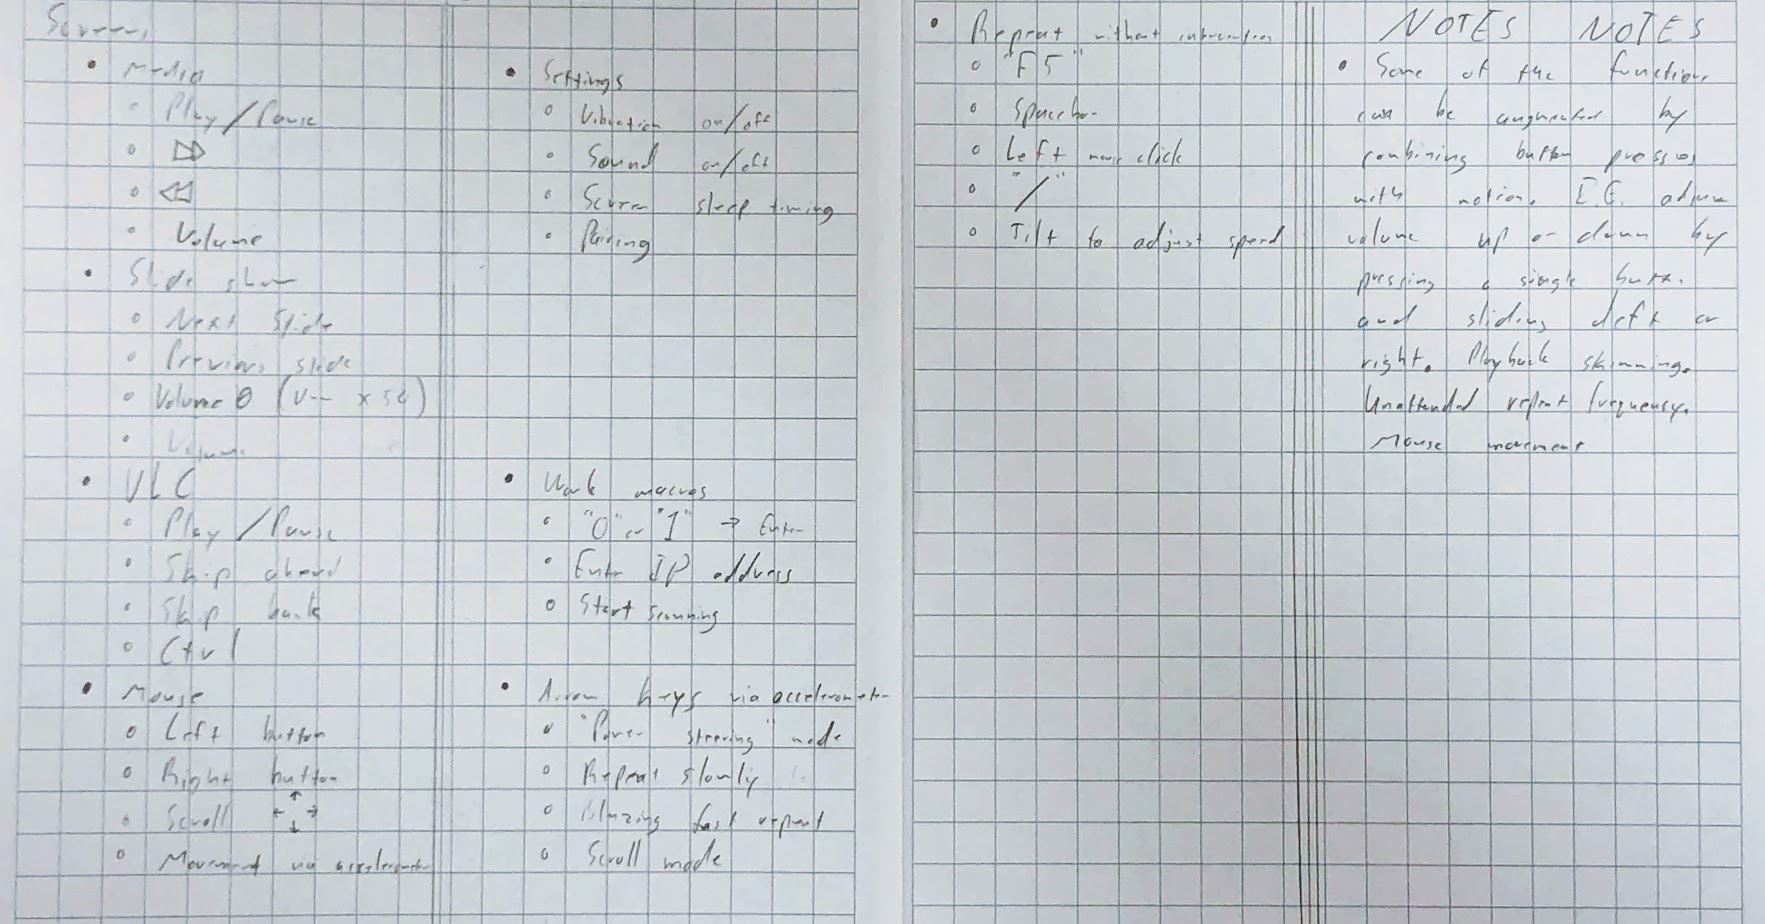 Screens
• Media
◦ Play/Pause
◦ ▷▷
◦ ◁◁
◦ Volume
• Slide show
◦ Next Slide
◦ Previous slide
◦ Volume 0 (V-- x 50)
◦ Volume
• VLC
◦ Play/Pause
◦ Skip ahead
◦ Skip back
◦ Ctrl
• Mouse
◦ Left button
◦ Right button
◦ Scroll ← ↑ ↓ →
◦ Movement via accelerometer
• Settings
◦ Vibration on/off
◦ Sound on/off
◦ Screen sleep timing
◦ Pairing
• Work macros
◦ "0" or "1" → Enter
◦ Enter IP address
◦ Start scanning
• Arrow keys via accelerometer
◦ "Power steering" mode
◦ Repeat slowly
◦ Blazing fast repeat
◦ Scroll mode
• Repeat without intervention
◦ "F5"
◦ Spacebar
◦ Left mouse click
◦ "/"
◦ Tilt to adjust speed
NOTES NOTES
• Some of the functions
can be augmented by
combining button presses
with motion. I.E. adjust
volume up or down by
pressing a single button
and sliding left or
right. Playback skimming.
Unattended repeat frequency.
Mouse movement